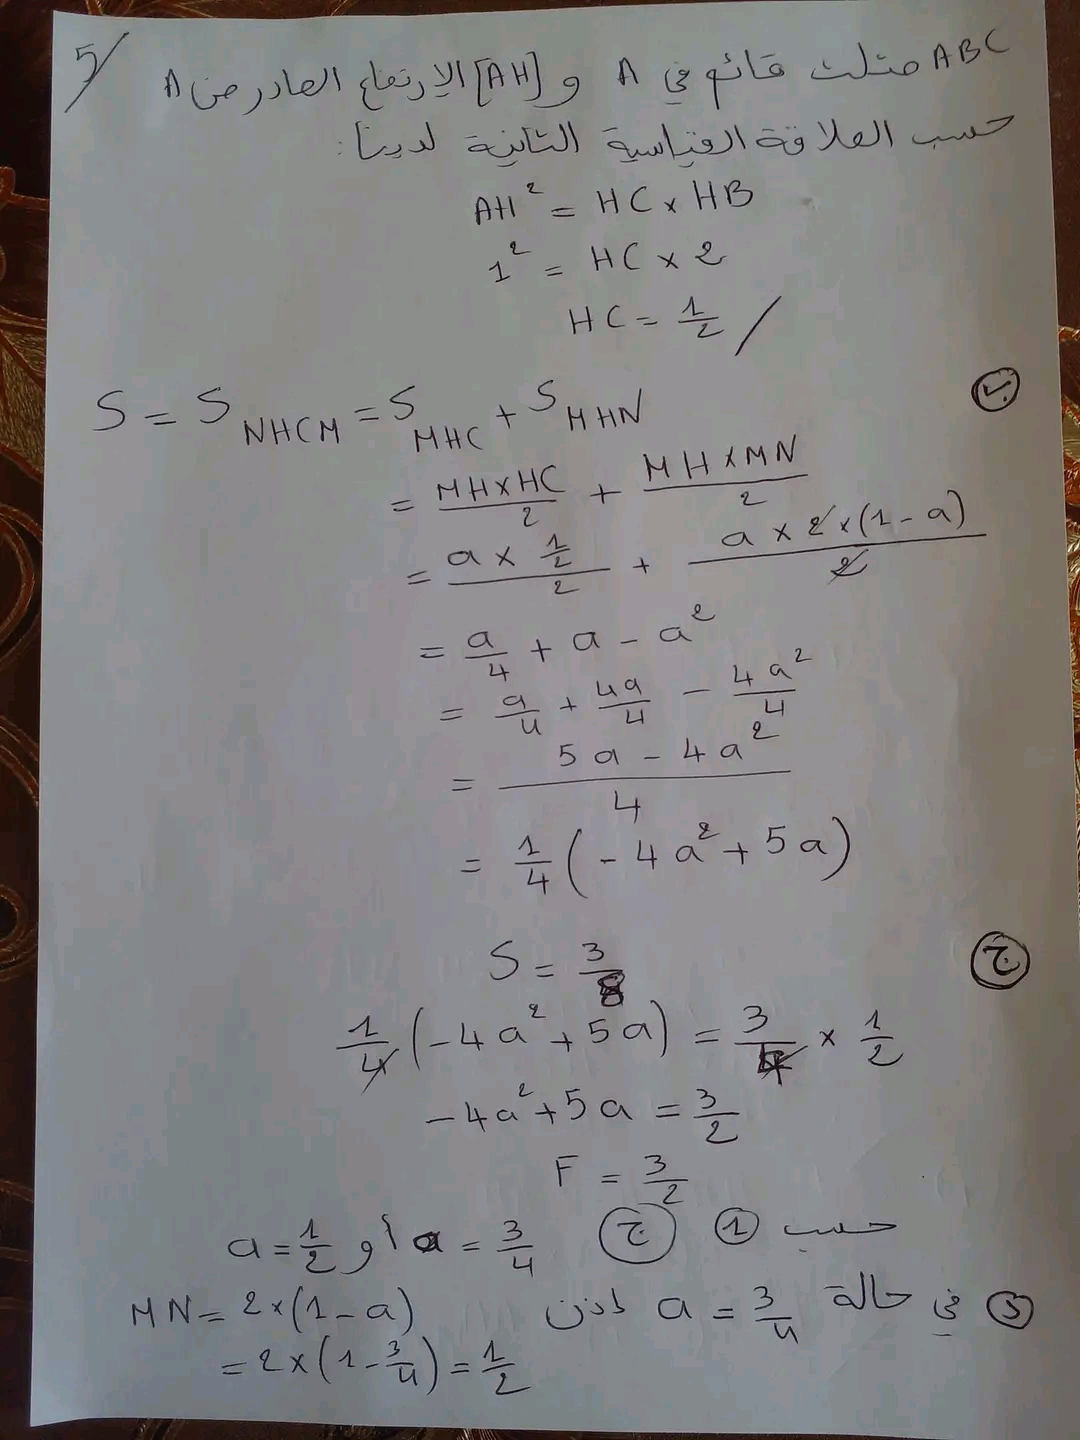 5/
ABC مثلث قائم في A و [AH] الارتفاع الصادر من A
حسب العلاقة القياسية الثانية لدينا:
AH² = HC × HB
1² = HC × 2
HC = 1/2 /
ب
S = S NHCM = S MHC + S MHN
= MH×HC/2 + MH×MN/2
= a × 1/2 / 2 + a × 2 × (1 - a) / 2
= a/4 + a - a²
= a/4 + 4a/4 - 4a²/4
= 5a - 4a² / 4
= 1/4 (-4a² + 5a)
ج
S = 3/8
1/4 (-4a² + 5a) = 3/4 × 1/2
-4a² + 5a = 3/2
F = 3/2
حسب 1 ج a = 3/4 أو a = 1/2
د في حالة a = 3/4 إذن MN = 2×(1 - a)
= 2×(1 - 3/4) = 1/2